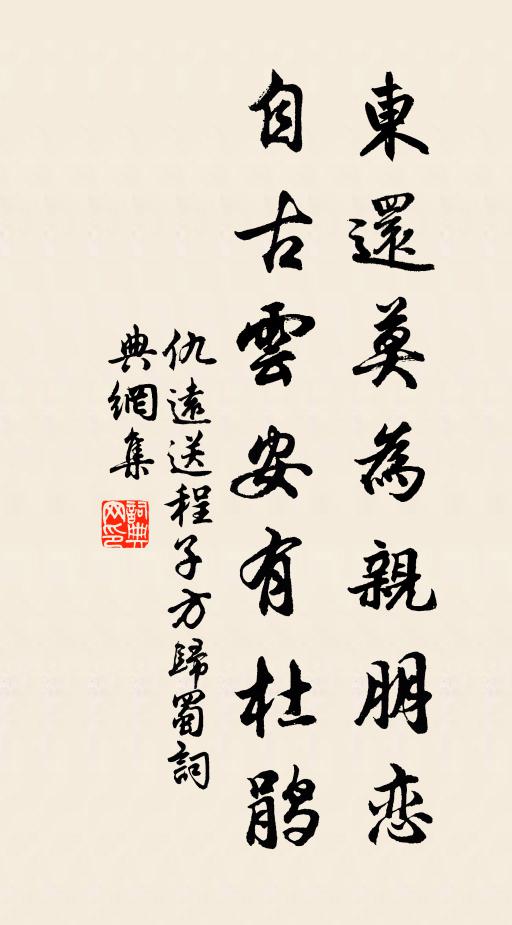 東還莫為親朋恋
自古雲安有杜鹃
仇遠送程子方歸蜀詞
典網集
詞典
网印